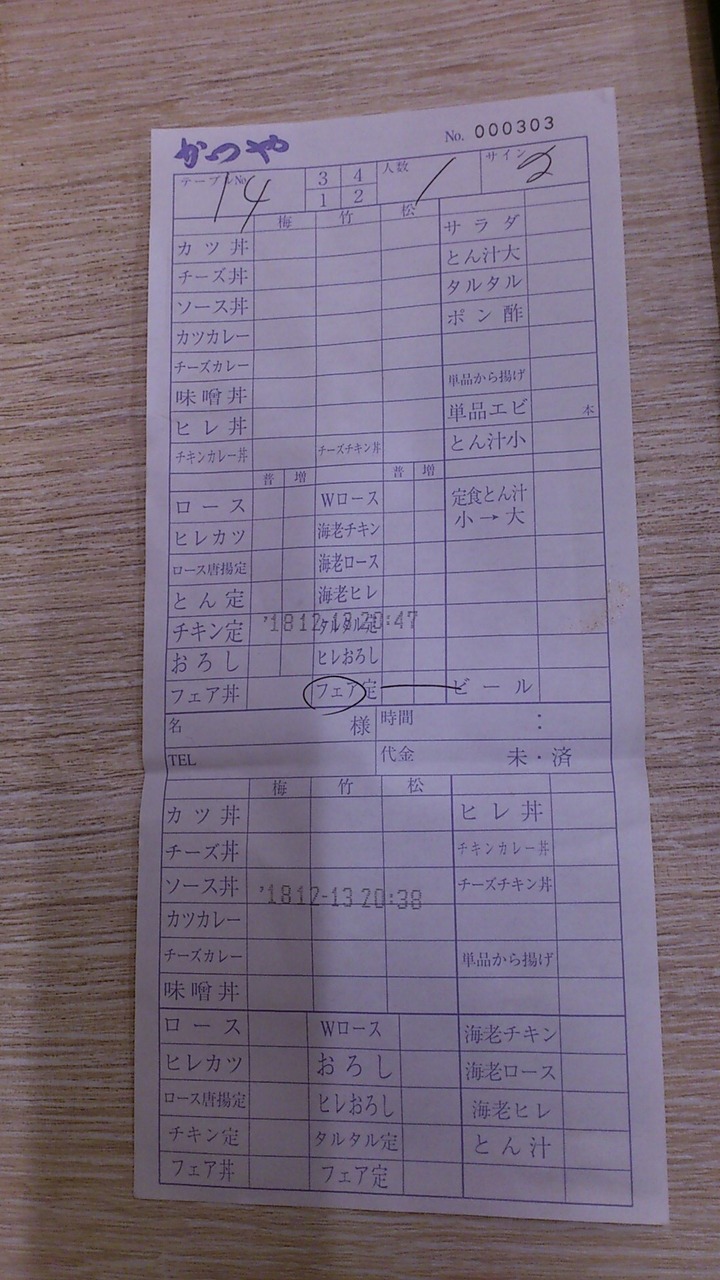 かつや No. 000303
テーブルNo. 14 3 4 1 2 人数 1 サイン 2
梅 竹 松 サラダ
カツ丼 とん汁大
チーズ丼 タルタル
ソース丼 ポン酢
カツカレー
チーズカレー 単品から揚げ
味噌丼 単品エビ 本
ヒレ丼 とん汁小
チキンカレー丼 チーズチキン丼
普 増 普 増
ロース Wロース 定食とん汁
小→大
ヒレカツ 海老チキン
ロース唐揚定 海老ロース
とん定 海老ヒレ
チキン定 タルタル定
'18 12-13 20:47
おろし ヒレおろし
フェア丼 フェア定 ビール
名 様 時間 :
TEL 代金 未・済
梅 竹 松
カツ丼 ヒレ丼
チーズ丼 チキンカレー丼
ソース丼 チーズチキン丼
'18 12-13 20:38
カツカレー
チーズカレー 単品から揚げ
味噌丼
ロース Wロース 海老チキン
ヒレカツ おろし 海老ロース
ロース唐揚定 ヒレおろし 海老ヒレ
チキン定 タルタル定 とん汁
フェア丼 フェア定